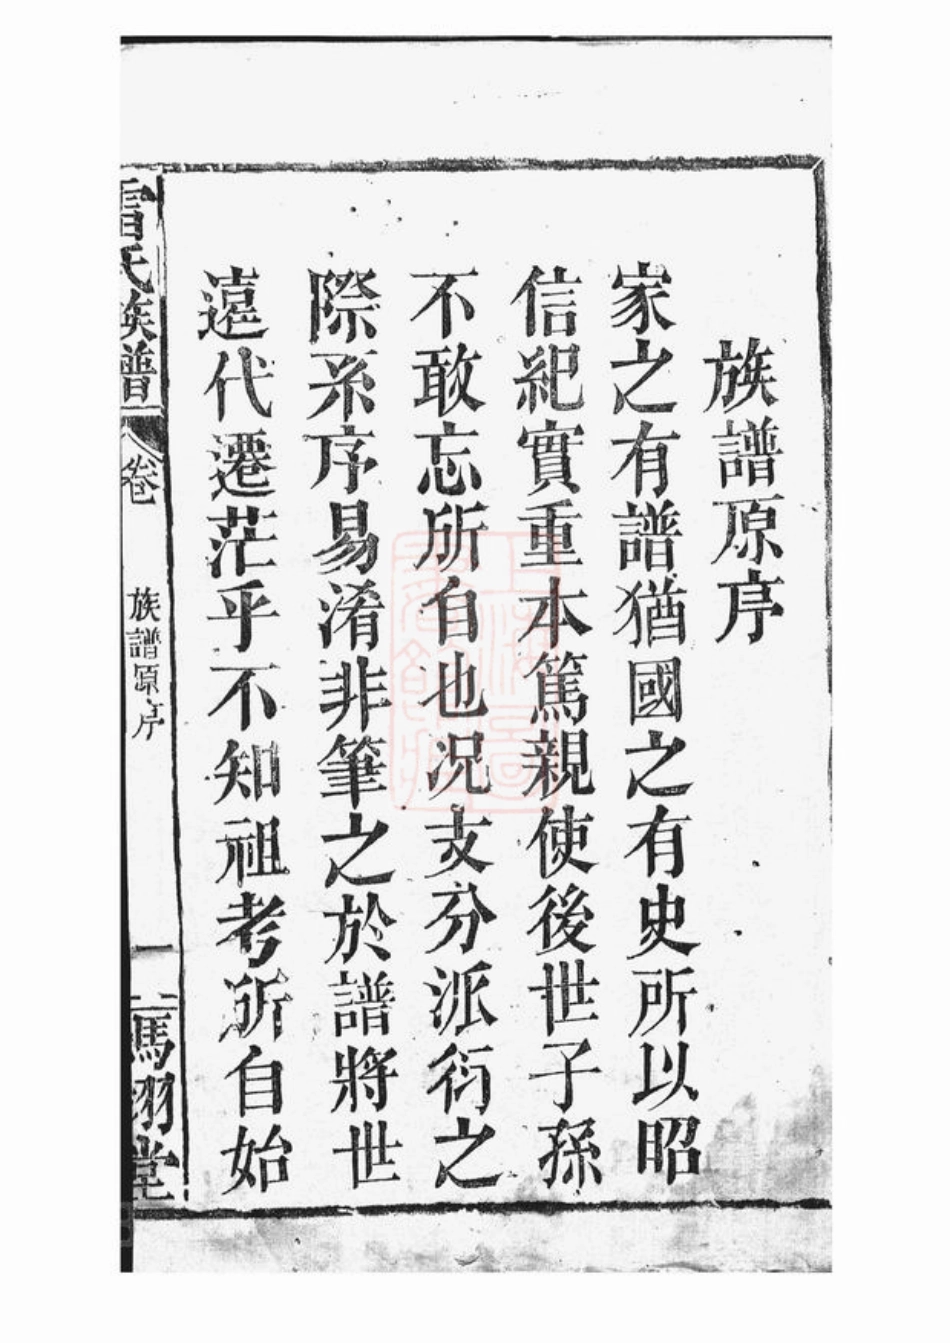 族譜原序
家之有譜猶國之有史所以昭
信紀實重本篤親使後世子孫
不敢忘所自也况支分派衍之
際系序易淆非筆之於譜將世
遠代遷茫乎不知祖考所自始
氏族譜
卷
族譜原序
一
馮翊堂